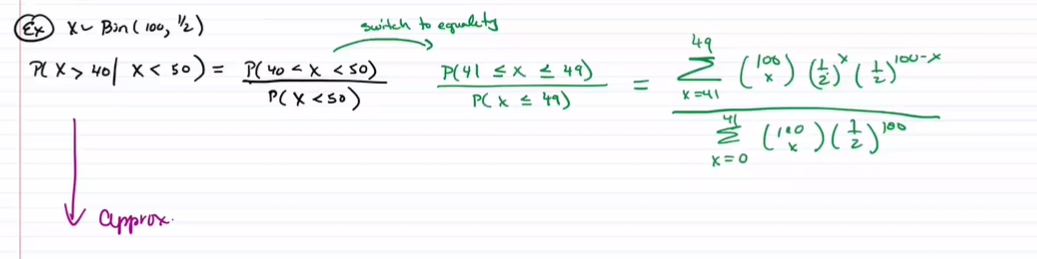 Ex X ~ Bin(100, 1/2)
switch to equality
P(X > 40 | X < 50) = P(40 < X < 50) / P(X < 50) P(41 ≤ X ≤ 49) / P(X ≤ 49) = ∑_{x=41}^{49} (100 x) (1/2)^x (1/2)^{100-x} / ∑_{x=0}^{41} (100 x) (1/2)^{100}
approx.